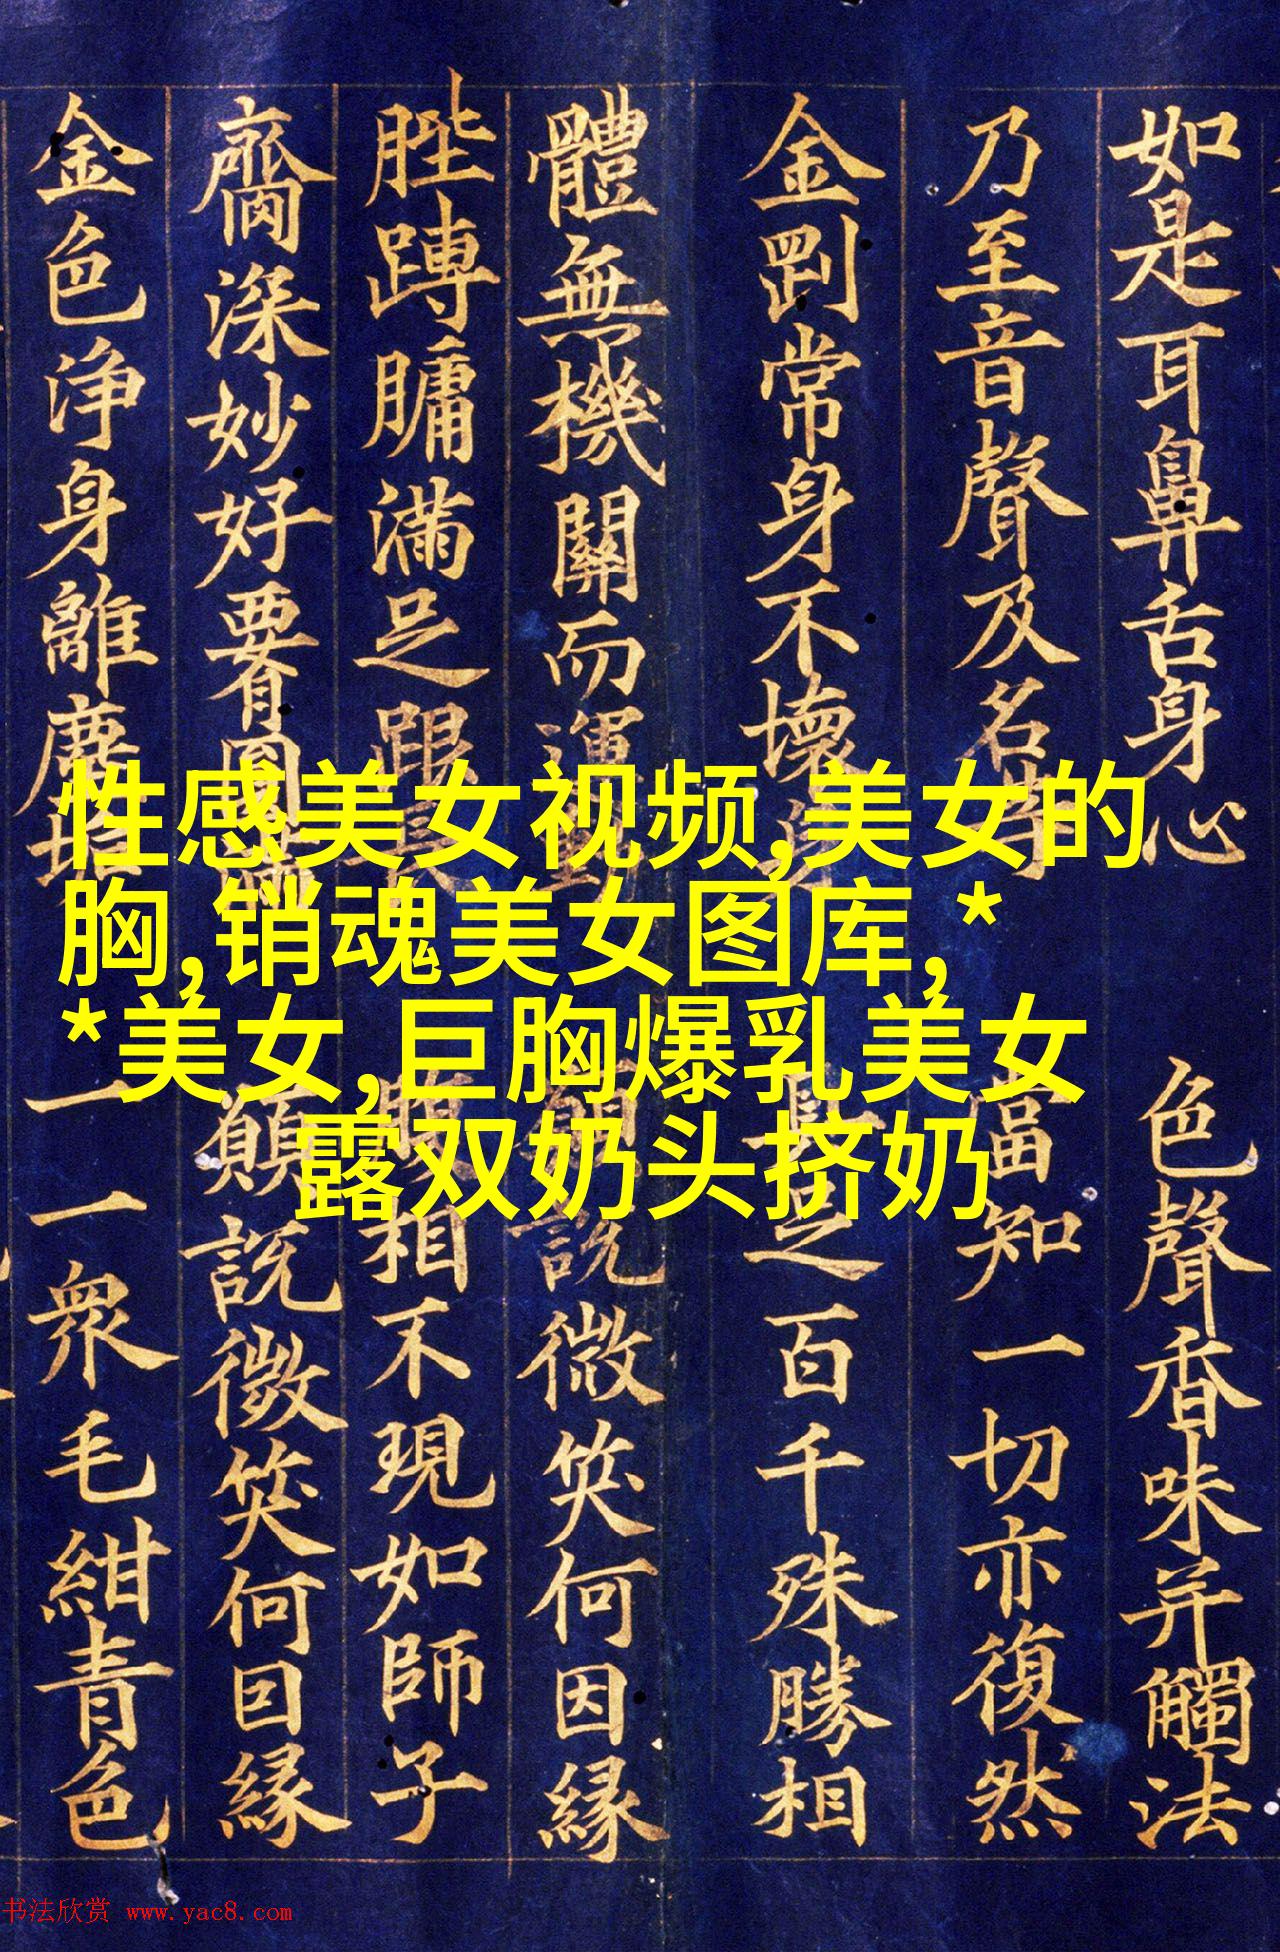 性感美女视频,美女的
胸,销魂美女图库,*
*美女,巨胸爆乳美女
露双奶头挤奶
如是耳鼻舌身心 色聲香味并觸法
乃至音聲及名字 當知一切亦復然
金剛常身不壞 足百千殊勝相
體無機關而運動 願說微笑何因緣
䏶膞𦟛滿足跟長 腹相不現如師子
臍深妙好腰圓滿 願說微笑何因緣
金色淨身離塵垢 一一眾毛紺青色
书法欣赏 www.yac8.com